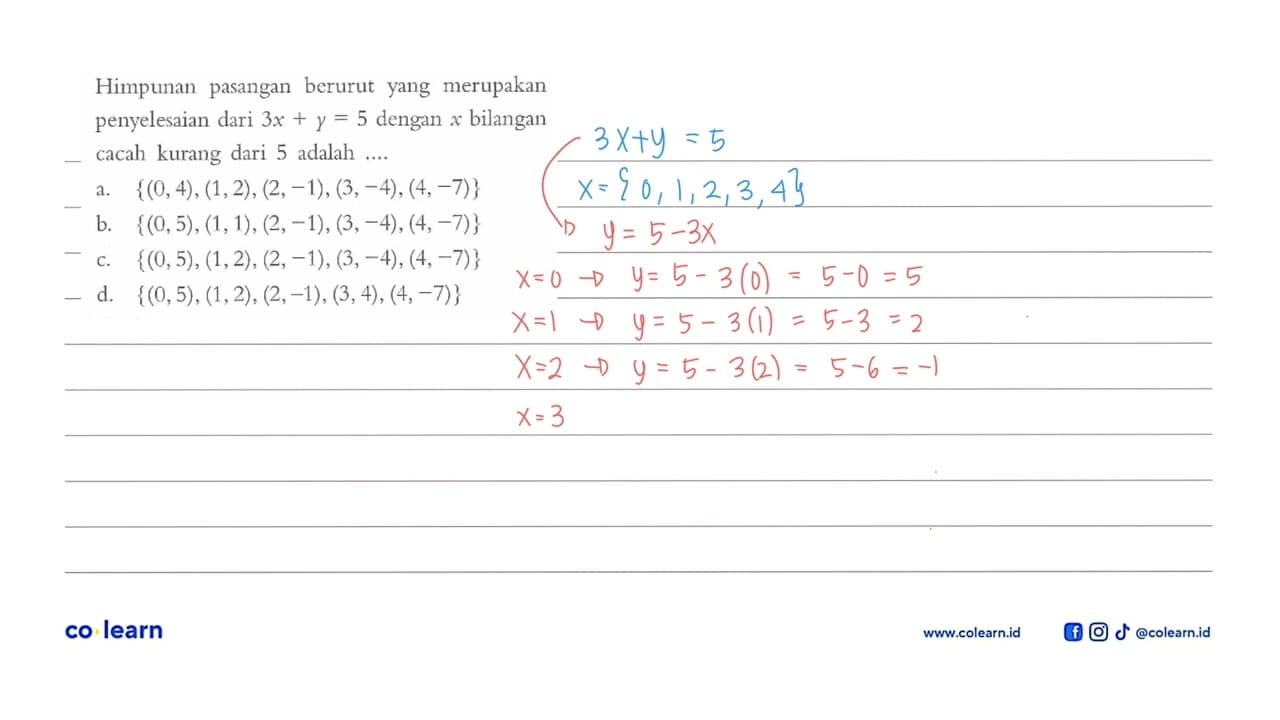 Himpunan pasangan berurut yang merupakan
penyelesaian dari 3x + y = 5 dengan x bilangan
cacah kurang dari 5 adalah ....
a. {(0, 4), (1, 2), (2, −1), (3, −4), (4, −7)}
b. {(0, 5), (1, 1), (2, −1), (3, −4), (4, −7)}
c. {(0, 5), (1, 2), (2, −1), (3, −4), (4, −7)}
d. {(0, 5), (1, 2), (2, −1), (3, 4), (4, −7)}
3x+y = 5
x = {0, 1, 2, 3, 4}
→ y = 5 − 3x
x=0 → y = 5 − 3(0) = 5−0 = 5
x=1 → y = 5 − 3(1) = 5−3 = 2
x=2 → y = 5 − 3(2) = 5−6 = −1
x=3
co learn
www.colearn.id
@colearn.id